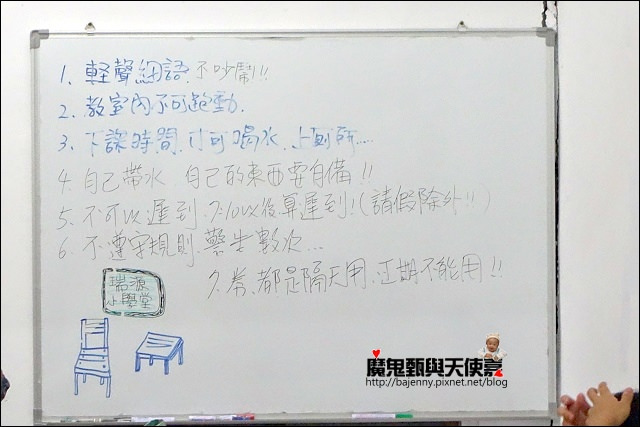 1. 輕聲細語,不吵鬧!!
2. 教室內不可跑動.
3. 下課時間,才可喝水,上廁所....
4. 自己帶水 自己的東西要自備!!
5. 不可以遲到, 後算遲到!(請假除外!!)
6. 不遵守規則,警告數次...
7. 券,都是隔天用,當期不能用!!
瑞源
小學堂
魔鬼甄與天使嘉
http://bajenny.pixnet.net/blog